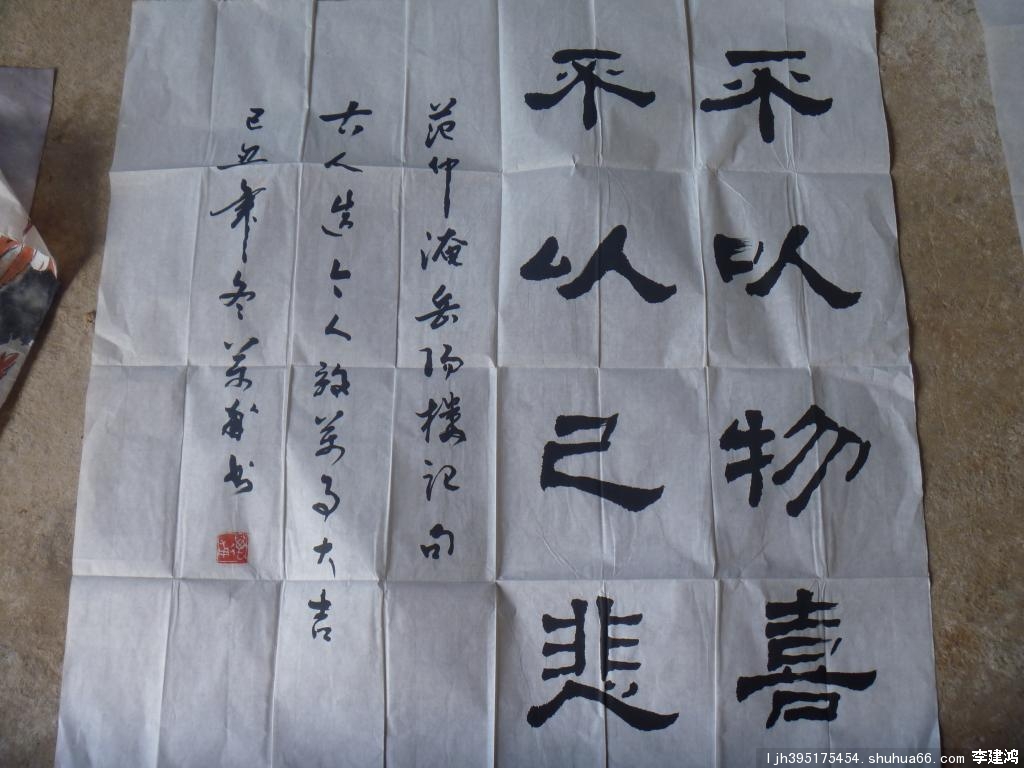 不以物喜
不以己悲
范仲淹岳阳楼记句
古人造今人效萬事大吉
己丑年冬书
ljh395175454. shuhua66. com 李建鸿